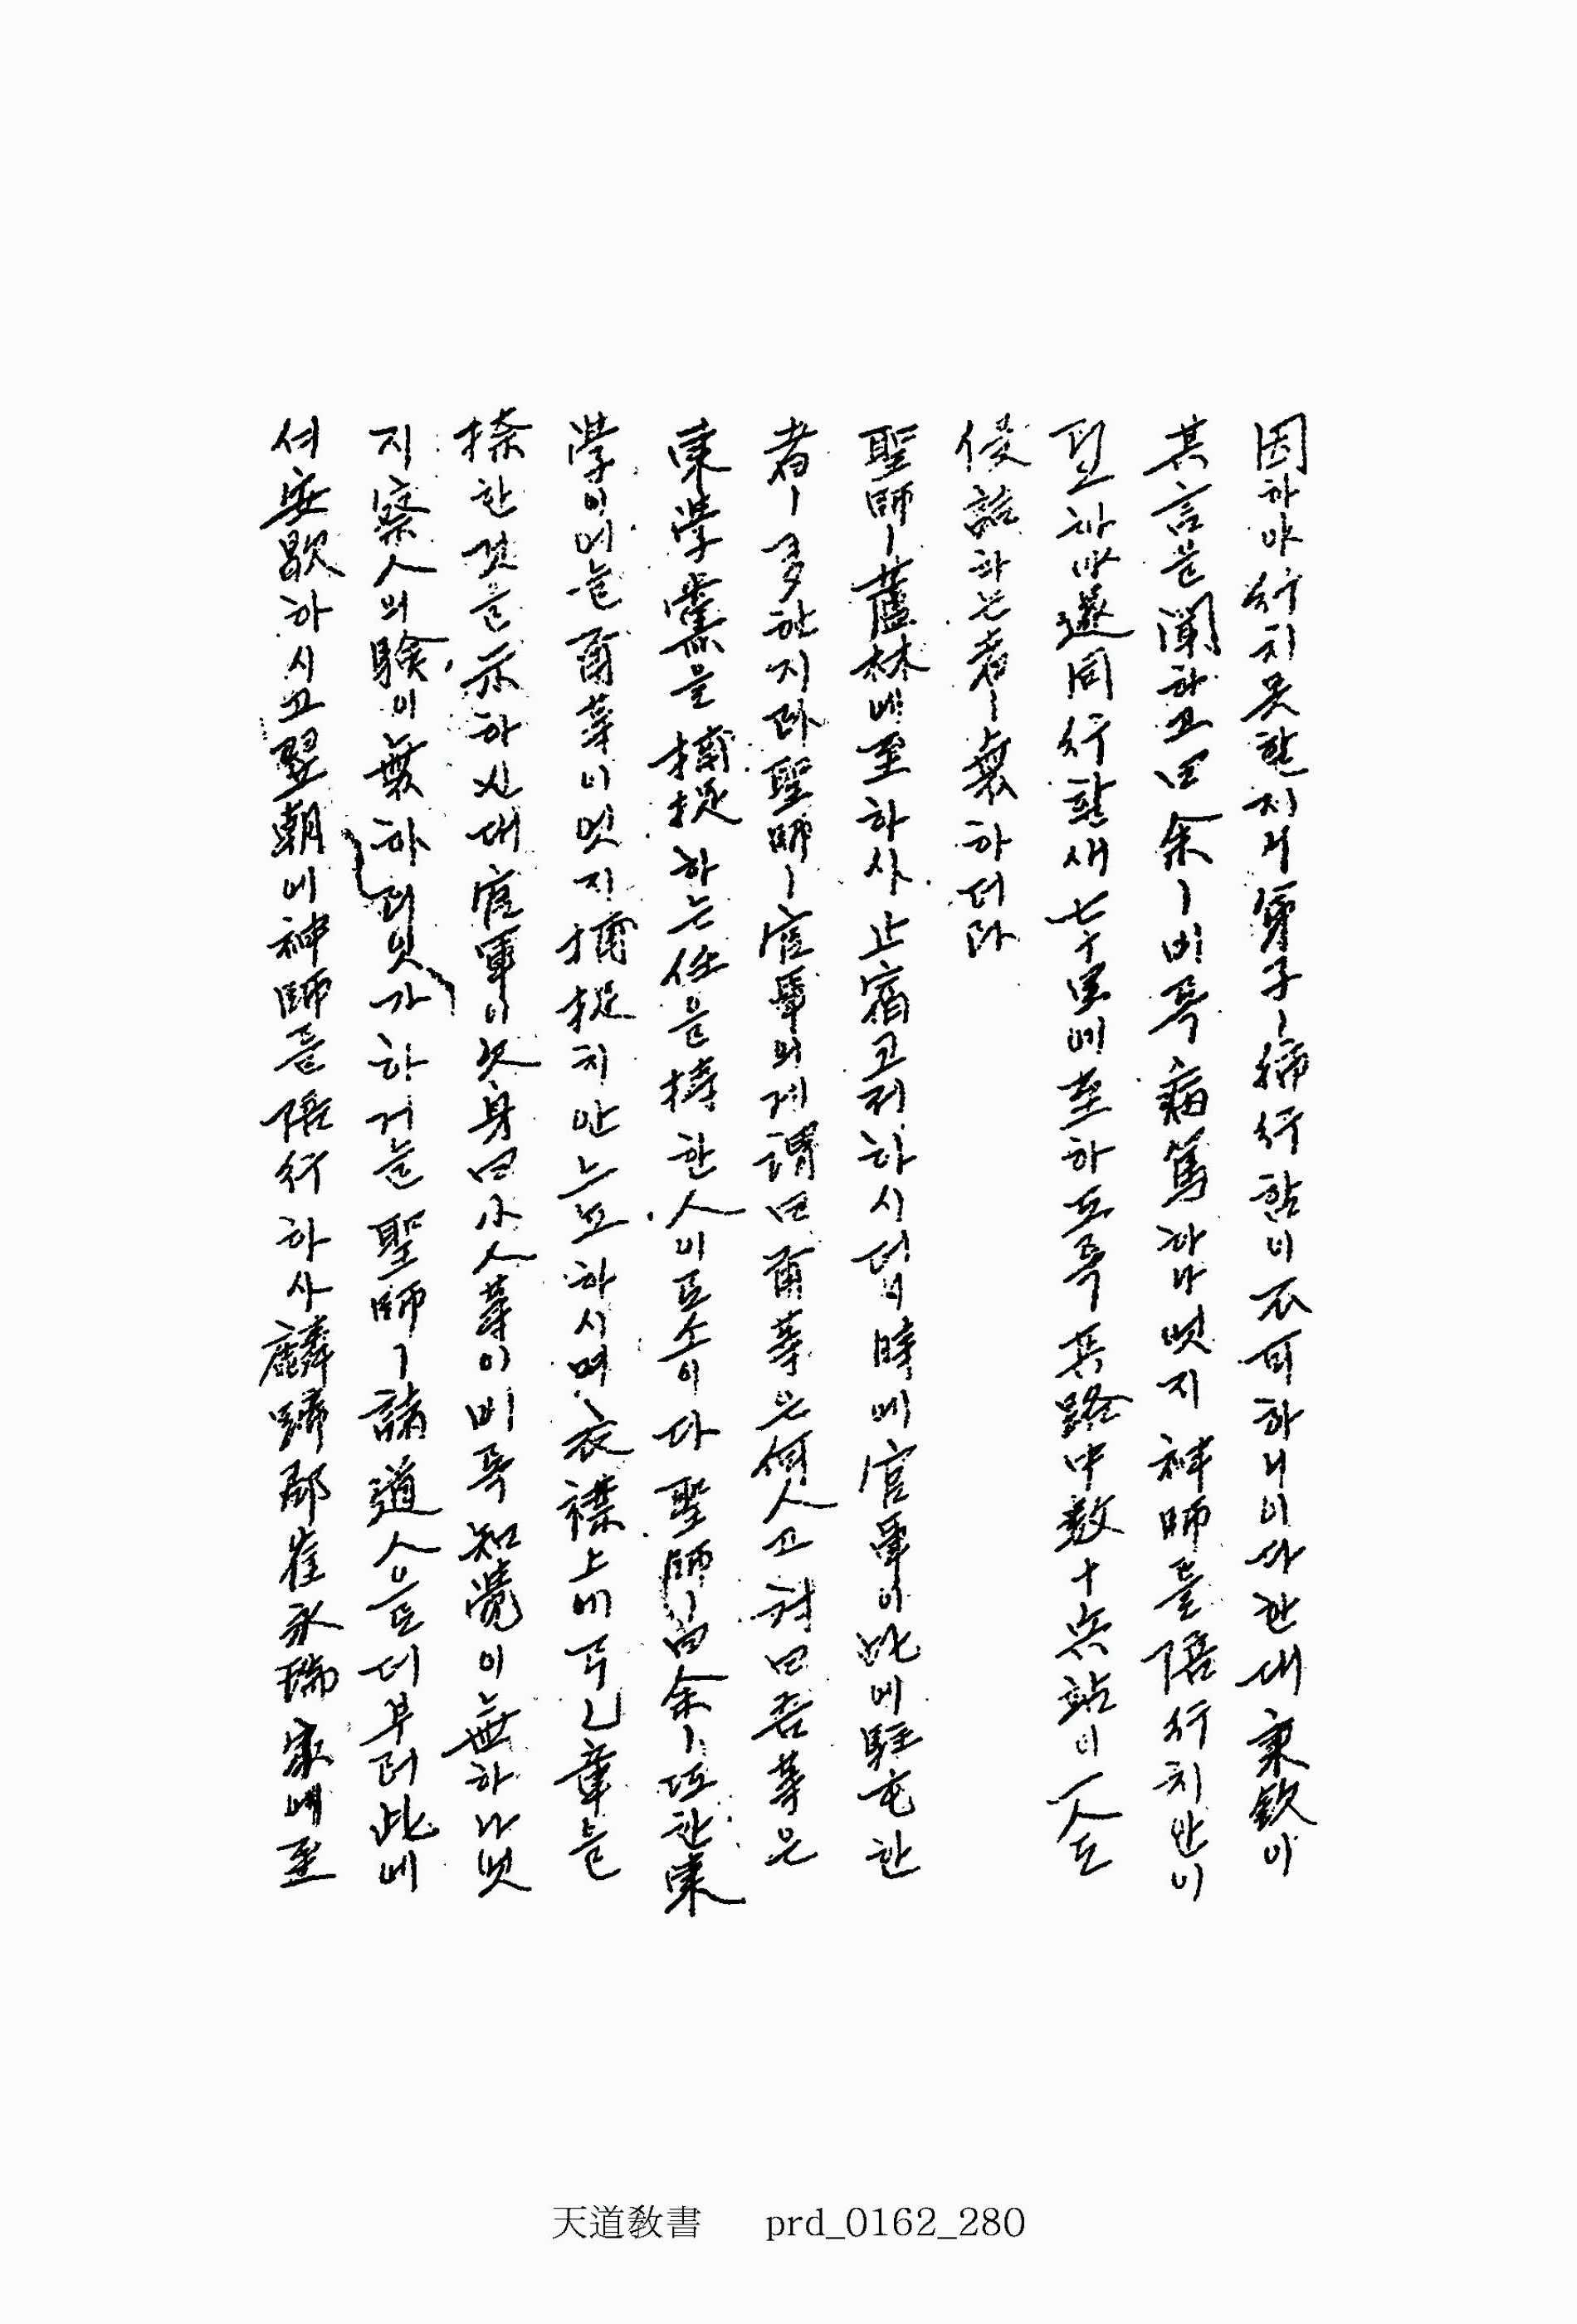 因하야 行치 못한지라 弟子ㅣ 獨行함이 不可하니이다 한대 秉欽이
其言을 聞하고 曰 余ㅣ 비록 病篤하나 엇지 神師를 陪行치 안이
하야 遂 同行할새 七十里에 至하도록 其路中 數十兵站이 一人도
侵詰하는 者ㅣ 無하더라
聖師ㅣ 蘆林에 至하사 止宿고져 하시더니 時에 官軍이 此에 駐屯한
者ㅣ 多한지라 聖師ㅣ 官軍의게 謂曰 爾等은 何人고 對曰 吾等은
東學黨을 捕捉하는 任을 持한 人이로소이다 聖師ㅣ 曰 余ㅣ 또한 東
學이어늘 爾等이 엇지 捕捉치 안느뇨 하시며 衣襟上에 弓乙章을
揷한 것을 示하신대 官軍이 欠身曰 小人等이 비록 知覺이 無하나 엇
지 察人의 驗이 無하릿가 하거늘 聖師ㅣ 諸道人으로 더부러 此에
셔 安歇하시고 翌朝에 神師를 陪行하사 麟蹄郡 崔永瑞家에 至
天道敎書 prd_0162_280